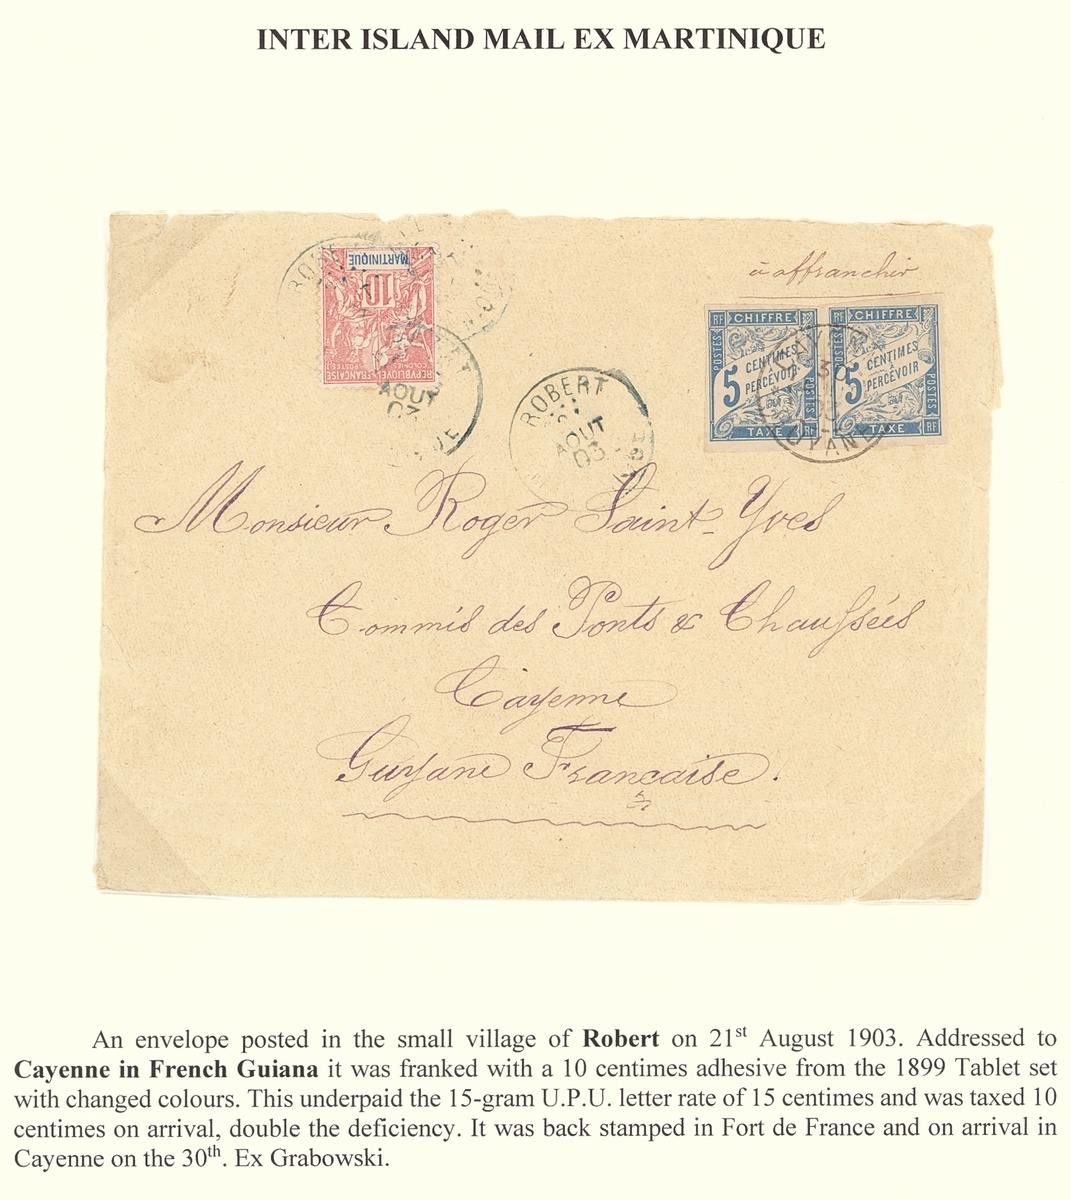 INTER ISLAND MAIL EX MARTINIQUE
à affranchir
MARTINIQUE
10
COLONIES POSTES
REPUBLIQUE FRANÇAISE
AOUT
03
ROBERT
AOUT
03
RF CHIFFRE
POSTES
5 CENTIMES
À
PERCEVOIR
TAXE RF
RF CHIFFRE
POSTES
5 CENTIMES
À
PERCEVOIR
POSTES
TAXE RF
30
GUYANE
Monsieur Roger Saint-Yves
Commis des Ponts & Chaussées
Cayenne
Guyane Française.
An envelope posted in the small village of Robert on 21st August 1903. Addressed to
Cayenne in French Guiana it was franked with a 10 centimes adhesive from the 1899 Tablet set
with changed colours. This underpaid the 15-gram U.P.U. letter rate of 15 centimes and was taxed 10
centimes on arrival, double the deficiency. It was back stamped in Fort de France and on arrival in
Cayenne on the 30th. Ex Grabowski.